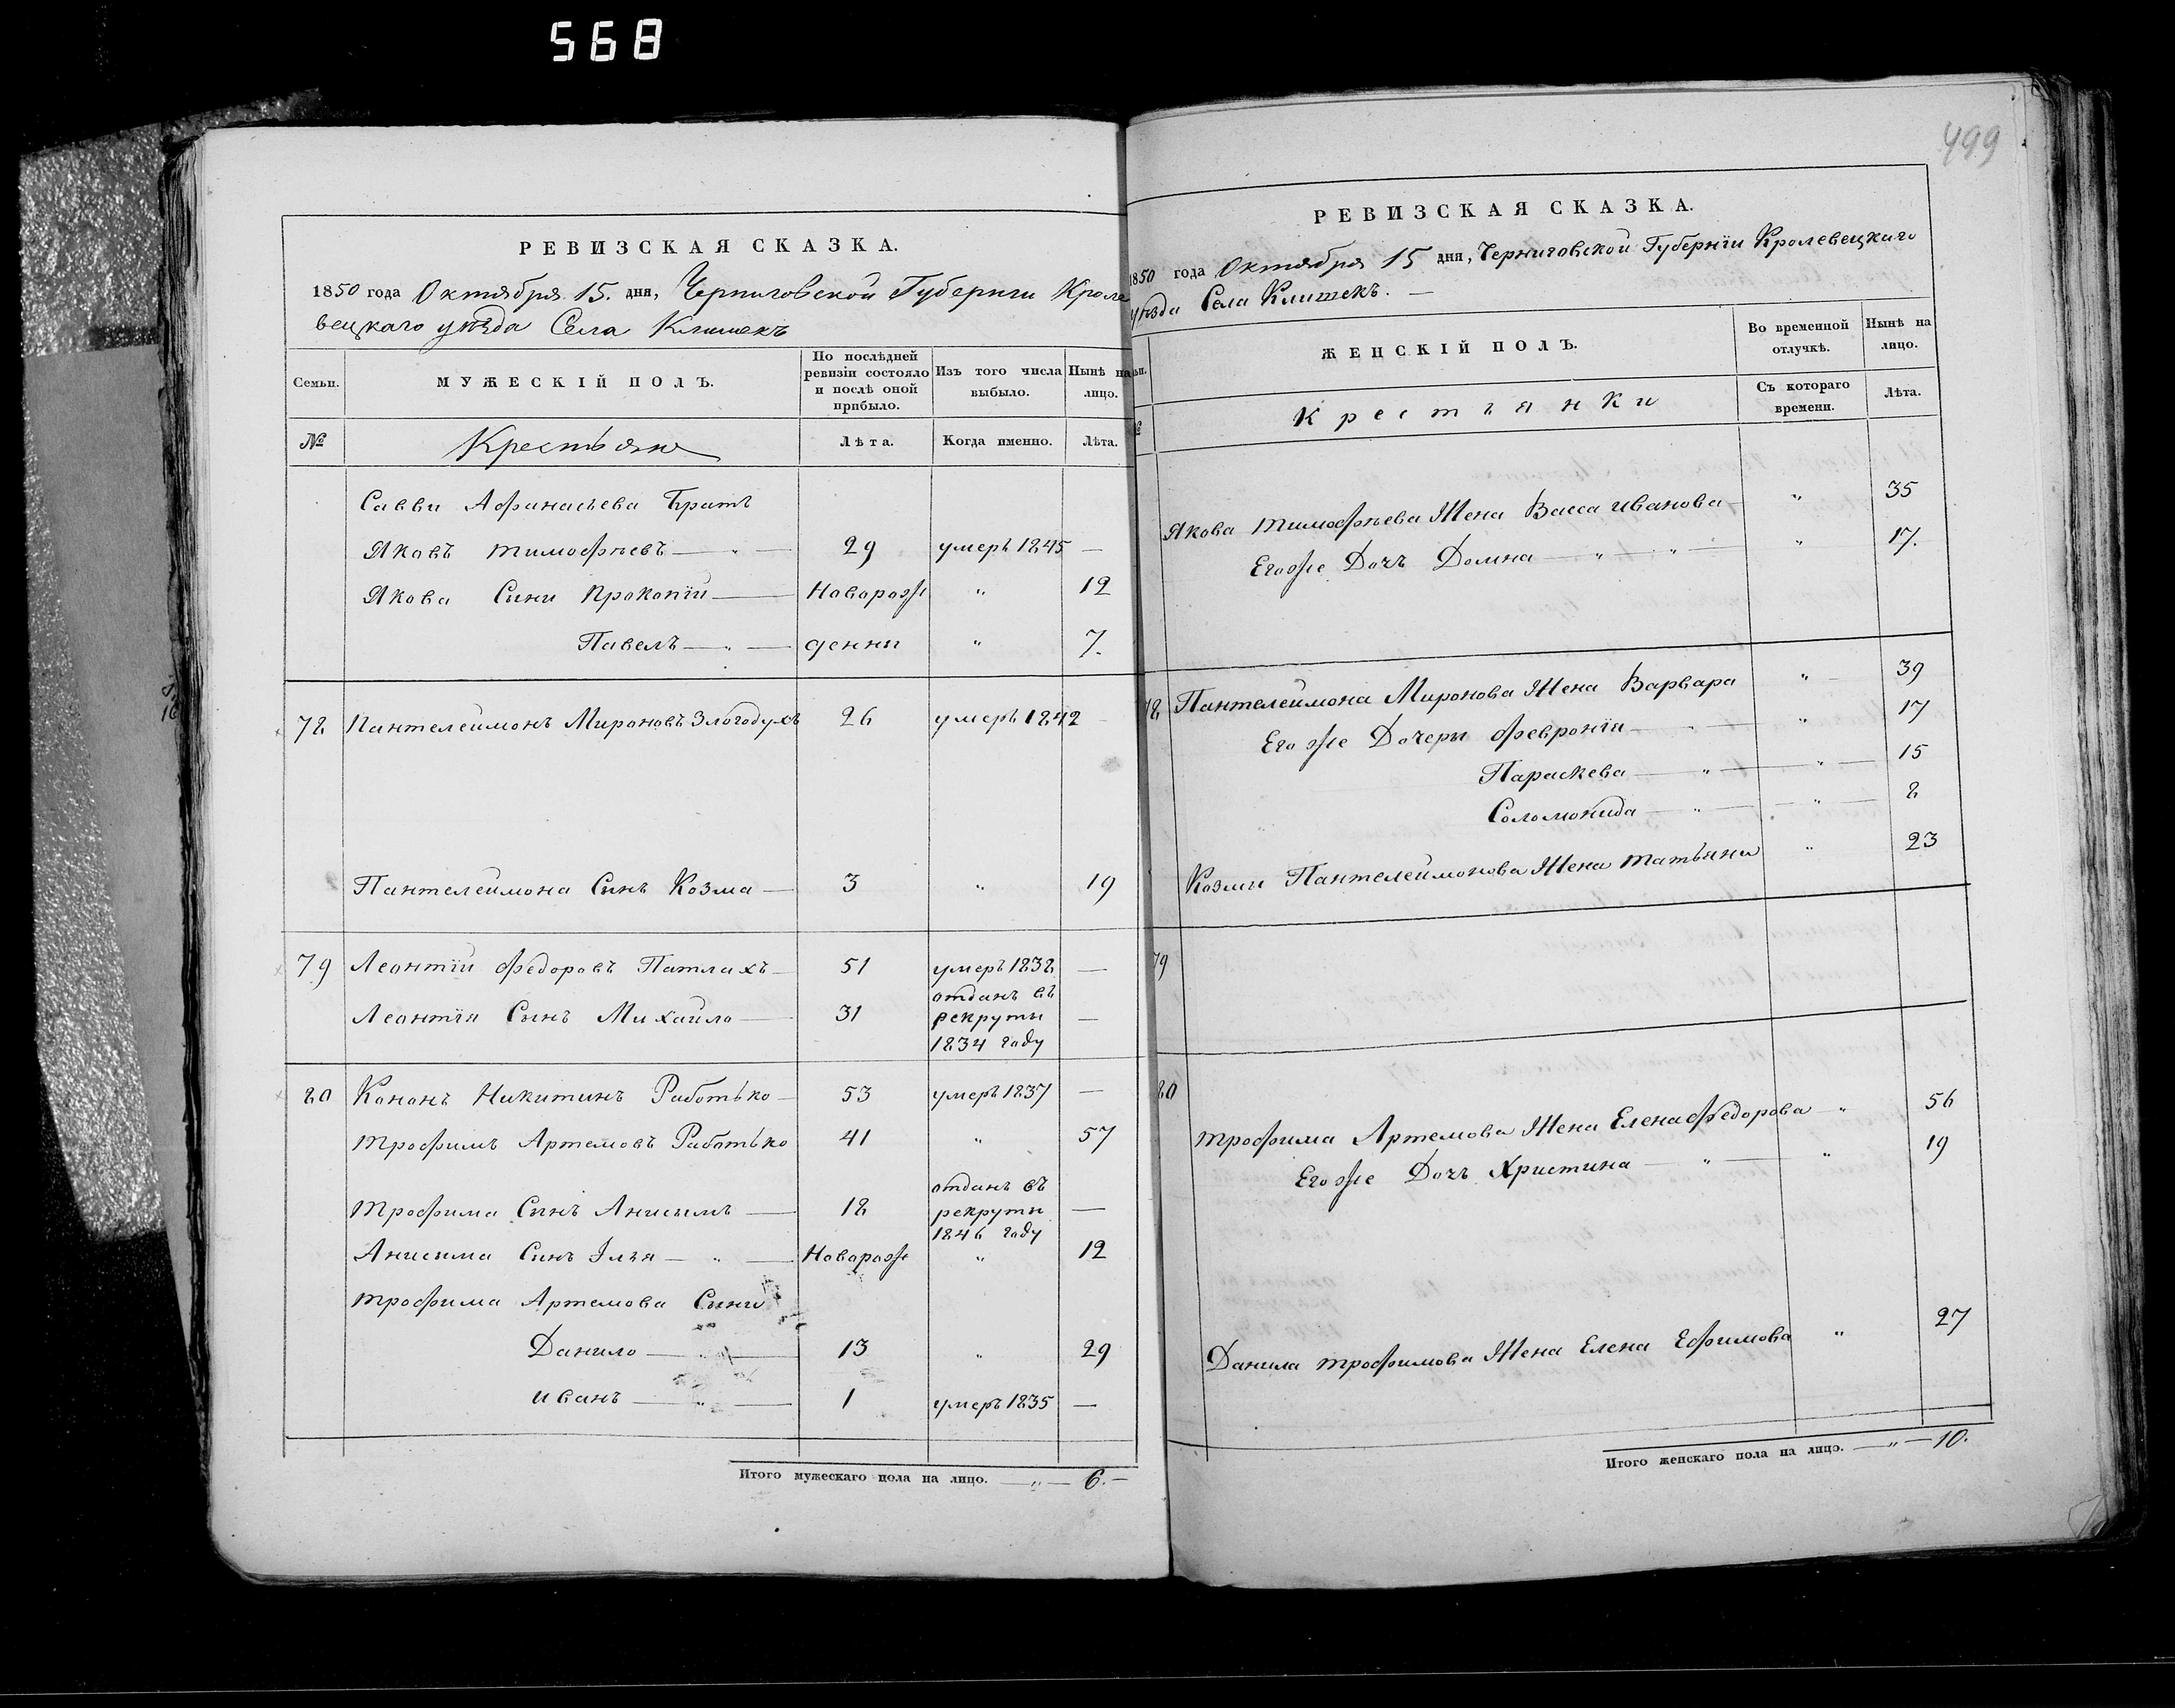 568
499
РЕВИЗСКАЯ СКАЗКА.
1850 года Октября 15. дня, Черниговской Губернии Кроле
вецкаго уѣзда Села Клишекъ
Семьи.
МУЖЕСКІЙ ПОЛЪ.
По послѣдней ревизіи состояло и послѣ оной прибыло.
Изъ того числа выбыло.
Нынѣ на лицо.
№ Крестьяне Лѣта. Когда именно. Лѣта.
Саввы Афанасьева Братъ
Яковъ Тимофѣевъ — „ — 29 умеръ 1845 —
Якова Сыны Прокопій — Новорож „ 12
Павелъ — „ — денны „ 7.
78 Пантелеймонъ Мироновъ Злогодухъ 26 умеръ 1842 —
Пантелеймона Сынъ Козма — 3 „ 19
79 Леонтій Федоровъ Патлахъ — 51 умеръ 1838 —
Леонтія Сынъ Михайло — 31 отданъ въ рекруты 1834 году —
80 Кононъ Никитинъ Работько — 53 умеръ 1837 —
Трофимъ Артемовъ Работько 41 „ 57
Трофима Сынъ Анисимъ — 18 отданъ въ рекруты 1846 году —
Анисима Сынъ Илья — „ — Новорож „ 12
Трофима Артемова Сыны
Данило — „ — 13 „ 29
Иванъ — „ — 1 умеръ 1835 —
Итого мужескаго пола на лицо. — „ — 6. —
РЕВИЗСКАЯ СКАЗКА.
1850 года Октября 15 дня, Черниговской Губерніи Кролевецкаго
уѣзда Села Клишекъ. —
ЖЕНСКІЙ ПОЛЪ.
Во временной отлучкѣ.
Нынѣ на лицо.
Крестьянки
Съ котораго времени.
Лѣта.
Якова Тимофѣева Жена Васса Иванова — „ 35
Егоже Дочь Домна — „ — „ — „ 17.
78 Пантелеймона Миронова Жена Варвара „ — 39
Егоже Дочеры Февронія — „ — „ 17
Параскева — „ — „ — 15
Соломонида — „ — „ — 8
Козмы Пантелеймонова Жена Татьяна „ 23
79
80
Трофима Артемова Жена Елена Федорова — „ 56
Егоже Дочь Христина — „ — „ 19
Данила Трофимова Жена Елена Ефимова „ 27
Итого женскаго пола на лицо. — „ — 10.